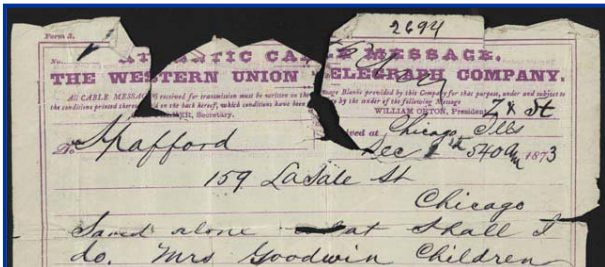 2694
Form 2.
No.
ATLANTIC CABLE MESSAGE.
THE WESTERN UNION TELEGRAPH COMPANY.
All CABLE MESSAGES received for transmission must be written on the Message Blanks provided by this Company for that purpose, under and subject to
the conditions printed thereon and on the back hereof, which conditions have been by the sender of the following Message
Secretary.
WILLIAM ORTON, President
Received at Chicago Ills
To Spafford
Dec 540 am 1873
159 LaSale St
Chicago
Saved alone what shall I
do. Mrs Goodwin Children